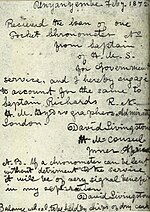 Unyanyembe Feby. 1872
Received the loan of one
Pocket Chronometer No
from Captain
of H.M.S.
for Government
service, and I hereby engage
to account for the same to
Captain Richards R.N.
Hydrographer Admiralty
London
David Livingstone
H.M. Consul,
Inner Africa
N.B. If a chronometer can be lent
without detriment to the service
it will be of very signal benefit
in my exploration
David Livingstone